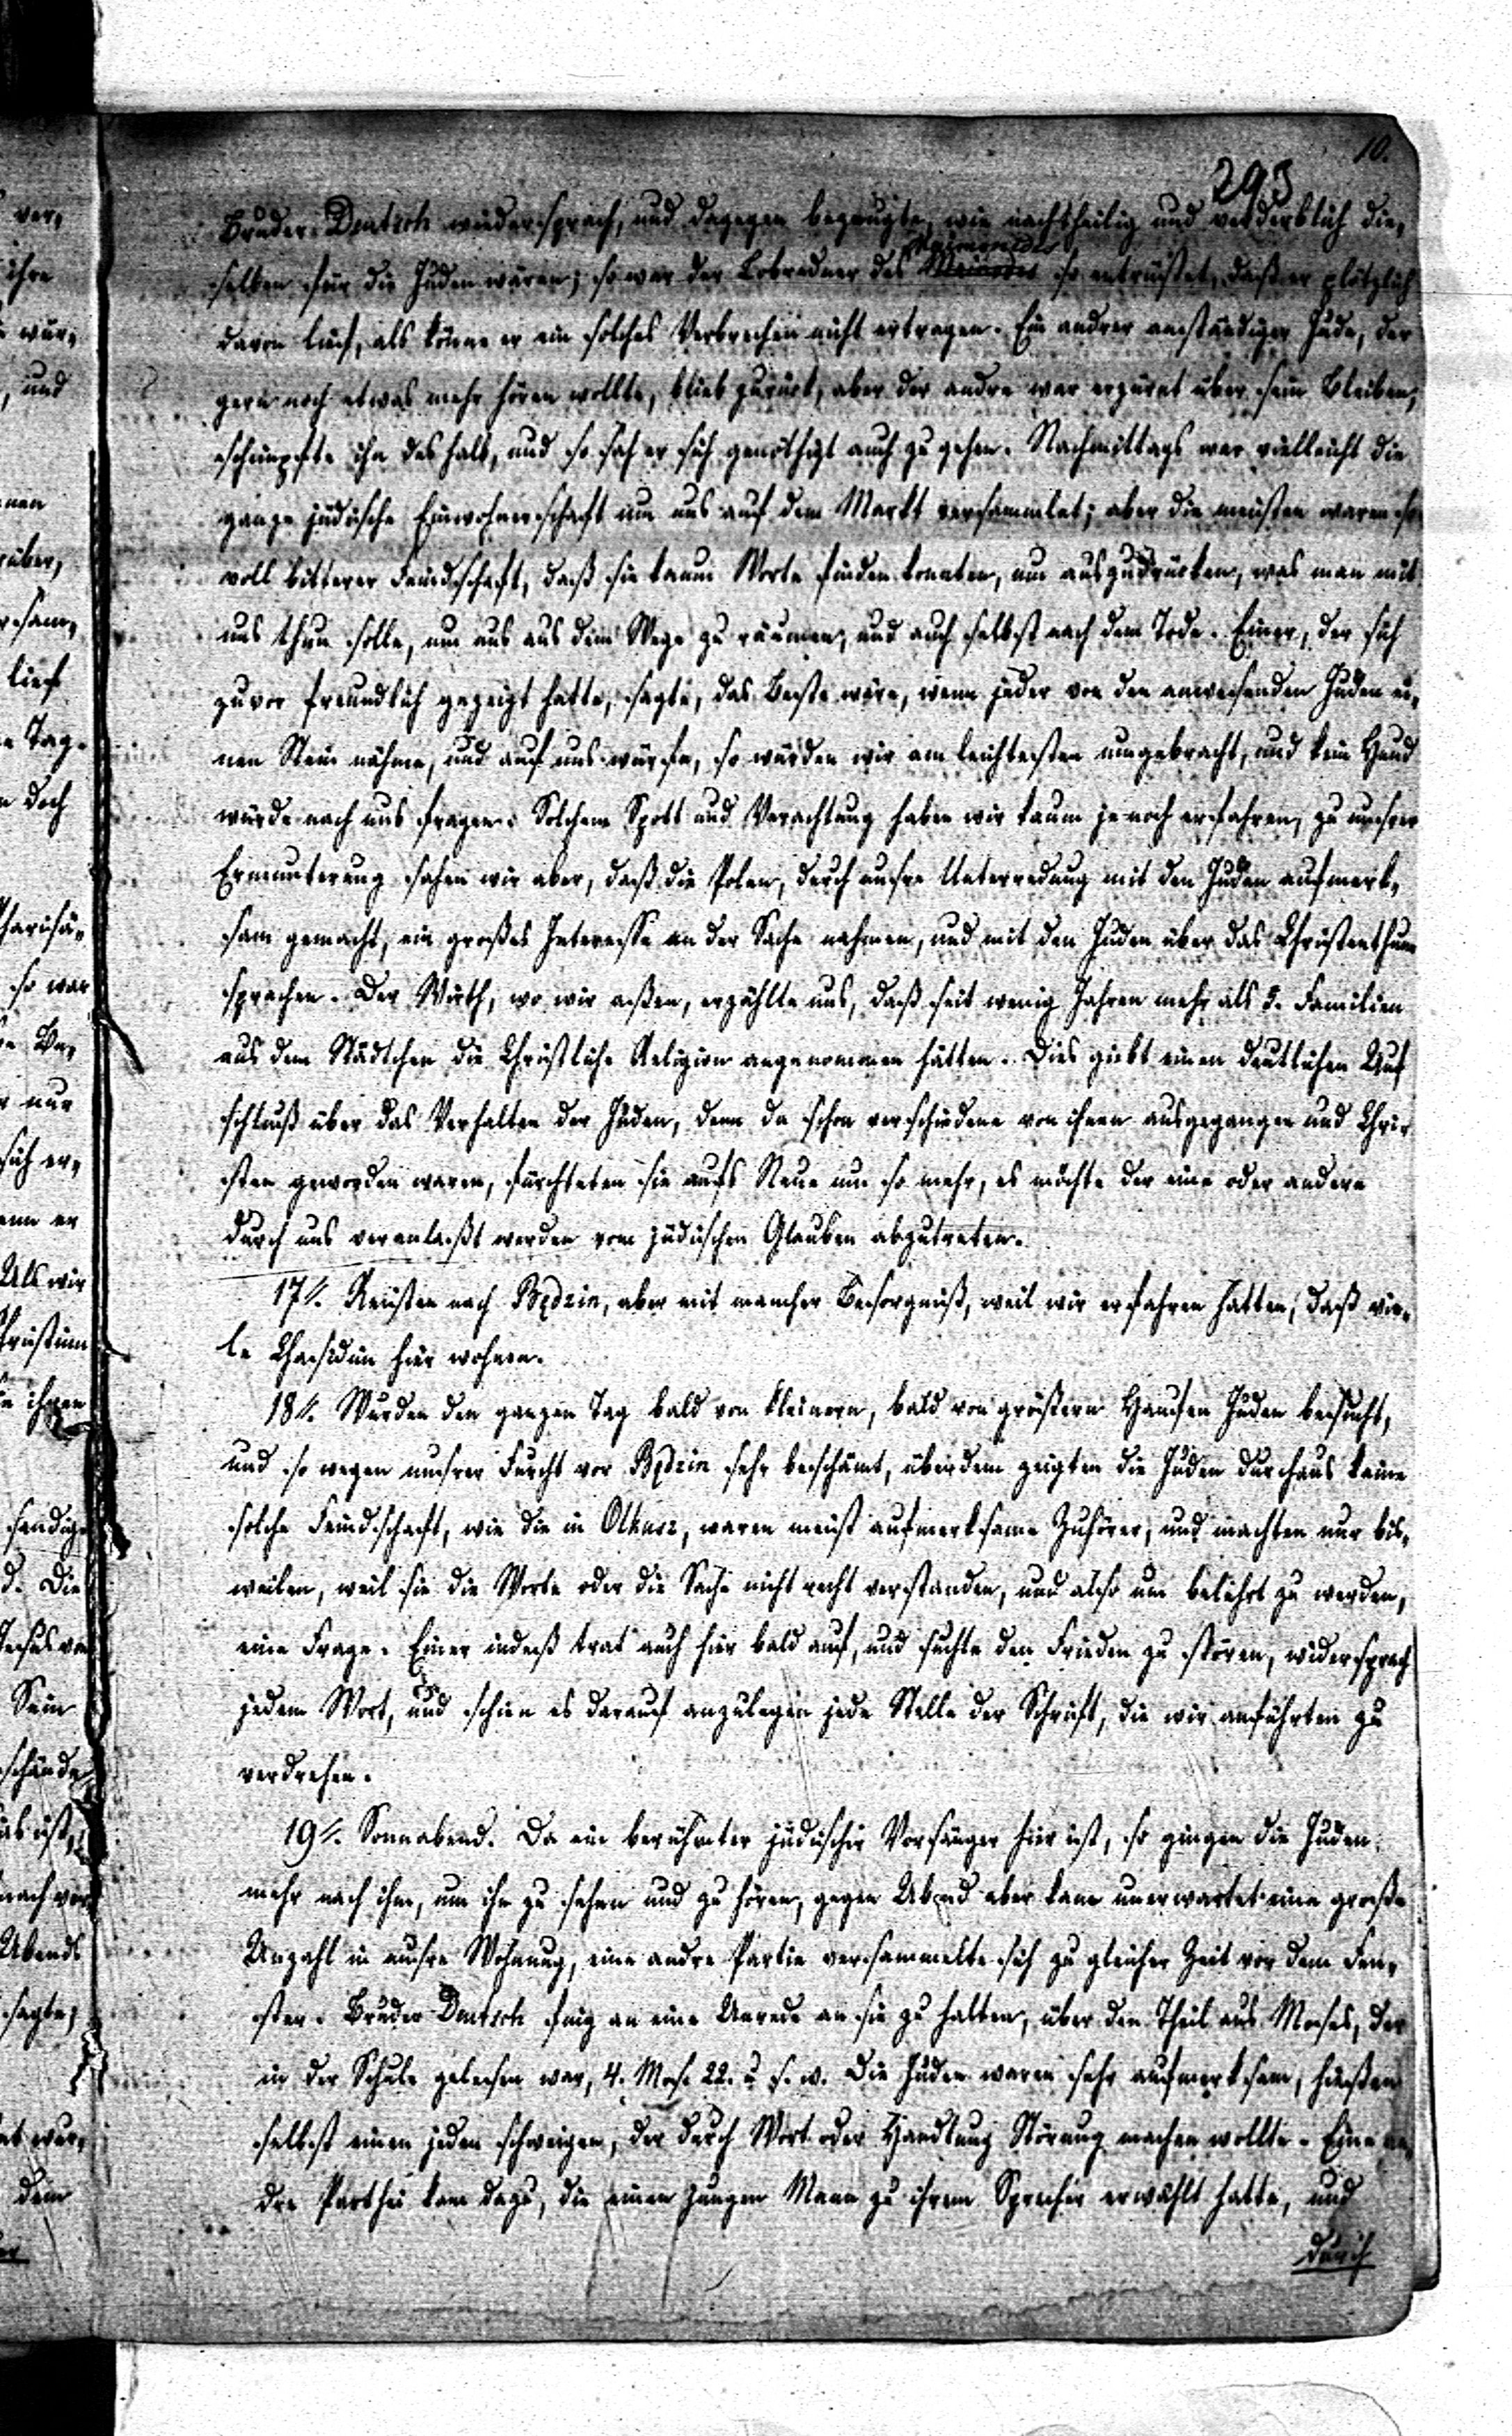 10.
293
Bruder Deutsch wiedersprach, und dagegen bezeugte, wie nachtheilig und verderblich die-
Maimonides
selben für die Juden wären; so war der Lobredner des so entrüstet, daß er plötzlich
davon lief, als könne er ein solches Verbrechen nicht ertragen. Ein andrer anständiger Jude, der
gern noch etwas mehr hören wollte, blieb zurück, aber der andre war erzürnt über sein Bleiben,
schimpfte ihn deshalb, und so sah er sich genöthigt auch zu gehen. Nachmittags war vielleicht die
ganze jüdische Einwohnerschaft um uns auf dem Markt versammlet; aber die meisten waren so
voll bitterer Feindschaft, daß sie kaum Worte finden konnten, um auszudrücken, was man mit
uns thun solle, um uns aus dem Wege zu räumen, und auch selbst nach dem Tode. Einer, der sich
zuvor freundlich gezeigt hatte, sagte, das Beste wäre, wenn jeder von den anwesenden Juden ei-
nen Stein nähme, und auf uns würfe, so würden wir am leichtesten umgebracht, und kein Hund
würde nach uns fragen. Solchen Spott und Verachtung haben wir kaum je noch erfahren, zu unsrer
Ermunterung sahen wir aber, daß die Polen, durch unsre Unterredung mit den Juden aufmerk-
sam gemacht, ein großes Interesse an der Sache nahmen, und mit den Juden über das Christenthum
sprachen. Der Wirth, wo wir aßen, erzählte uns, daß seit wenig Jahren mehr als 5. Familien
aus dem Städtchen die Christliche Religion angenommen hätten. Dies giebt einen deutlichen Auf
schluß über das Verhalten der Juden, denn da schon verschiedene von ihnen ausgegangen und Chri-
sten geworden waren, fürchteten sie aufs Neue um so mehr, es möchte der eine oder andere
durch uns veranlaßt werden vom jüdischen Glauben abzutreten.
17t. Reisten nach Będzin, aber mit mancher Besorgniß, weil wir erfahren hatten, daß vie-
le Chasidim hier wohnen.
18t. Wurden den ganzen Tag bald von kleinern, bald von größern Haufen Juden besucht,
und so wegen unsrer Furcht vor Będzin sehr beschämt, überdem zeigten die Juden durchaus keine
solche Feindschaft, wie die in Olkusz, waren meist aufmerksame Zuhörer, und machten nur bis-
weilen, weil sie die Worte oder die Sache nicht recht verstanden, und also um belehrt zu werden,
eine Frage. Einer indeß trat auch hier bald auf, und suchte den Frieden zu stören, widersprach
jedem Wort, und schien es darauf anzulegen jede Stelle der Schrift, die wir anführten zu
verdrehen.
19t. Sonnabend. Da ein berühmter jüdischer Vorsänger hier ist, so gingen die Juden
mehr nach ihm, um ihn zu sehen und zu hören, gegen Abend aber kam unerwartet eine große
Anzahl in unsre Wohnung, eine andre Partie versammelte sich zu gleicher Zeit vor dem Fen-
ster. Bruder Deutsch fing an eine Anrede an sie zu halten, über den Theil aus Moses, der
in der Schule gelesen war, 4. Mos. 22. u. s. w. Die Juden waren sehr aufmerksam, hießen
selbst einen jeden schweigen, der durch Wort oder Handlung Störung machen wollte. Eine an-
dre Parthei kam dazu, die einen jungen Mann zu ihrem Sprecher erwählt hatte, und
durch